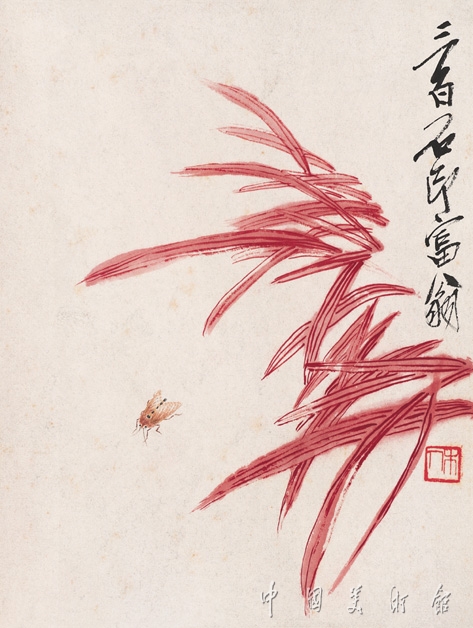 三百石印富翁
木人
中国美术馆